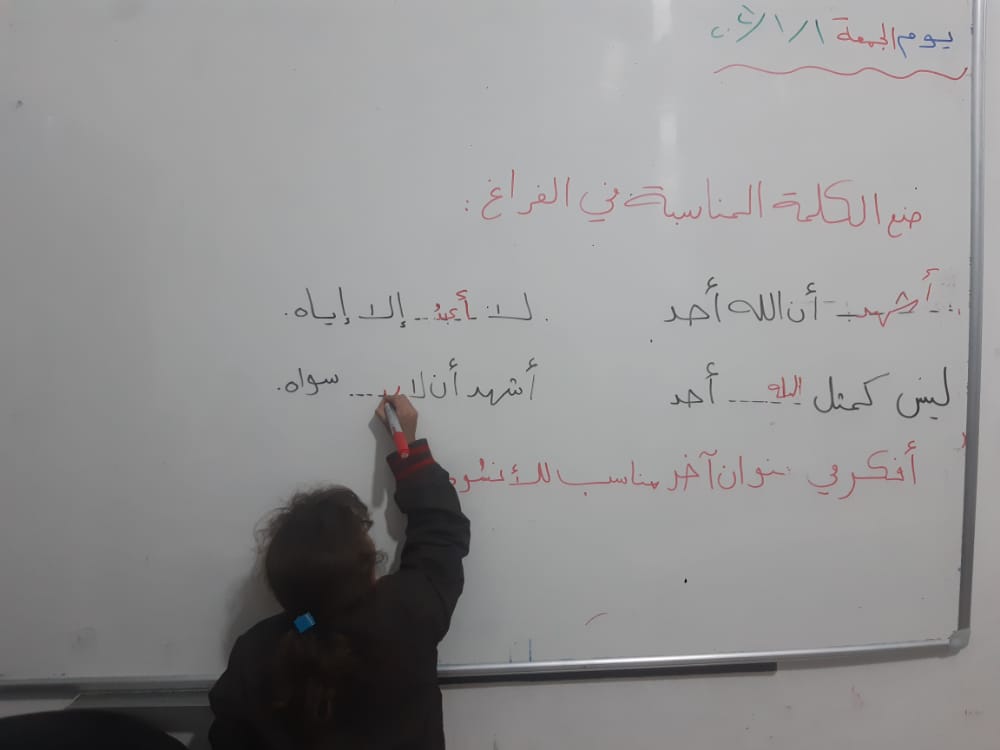 يوم الجمعة
ضع الكلمة المناسبة في الفراغ :
أشهد أن الله أحد
لا أعبدُ إلا إياه.
ليس كمثل الله أحد
أشهد أن لا سواه.
أفكر في نوان آخر مناسب للأنشو